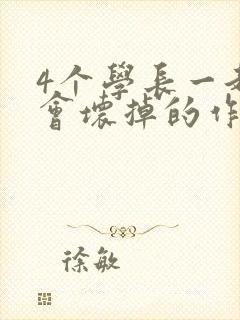 4个學長一
會壞掉的作
徐敏